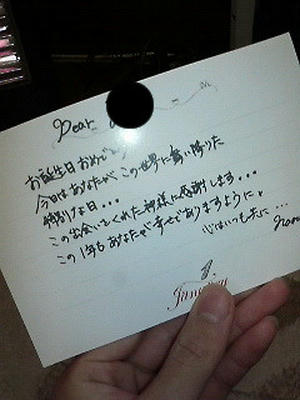 Dear
お誕生日おめで
今日はあなたがこの世界に舞い降りた
特別な日・・・
この出会いをくれた神様に感謝します・・・
この1年もあなたが幸せでありますように。
心はいつも共に・・・